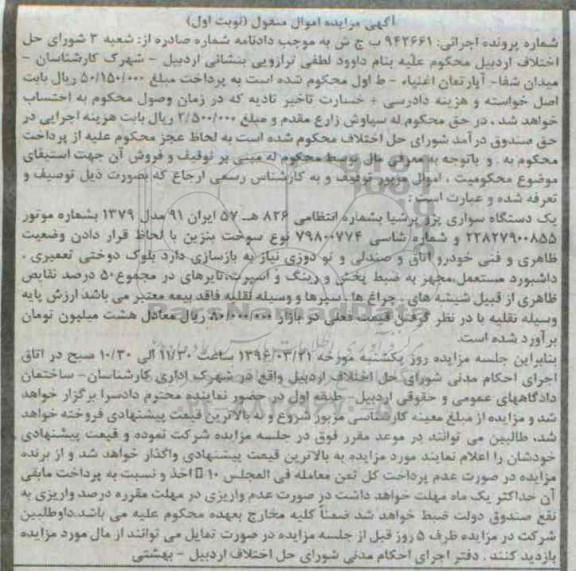 آگهی مزایده اموال منقول (نوبت اول)
شماره پرونده اجرائی: ۹۴۲۶۶۱ ب ج ش به موجب دادنامه شماره صادره از: شعبه ۳ شورای حل
اختلاف اردبیل محکوم علیه بنام داوود لطفی ترازویی بنشانی اردبیل - شهرک کارشناسان -
میدان شفا- آپارتمان اغنیاء - ط اول محکوم شده است به پرداخت مبلغ ۵۰/۱۵۰/۰۰۰ ریال بابت
اصل خواسته و هزینه دادرسی + خسارت تاخیر تادیه که در زمان وصول محکوم به احتساب
خواهد شد ، در حق محکوم له سیاوش زارع مقدم و مبلغ ۲/۵۰۰/۰۰۰ ریال بابت هزینه اجرایی در
حق صندوق در آمد شورای حل اختلاف محکوم شده است به لحاظ عجز محکوم علیه از پرداخت
محکوم به . و باتوجه به معرفی مال توسط محکوم له مبنی بر توقیف و فروش آن جهت استیفای
موضوع محکومیت ، اموال مزبور توقیف و به کارشناس رسمی ارجاع که بصورت ذیل توصیف و
تعرفه شده و عبارت است :
یک دستگاه سواری پژو پرشیا بشماره انتظامی ۸۲۶ هـ ۵۷ ایران ۹۱ مدل ۱۳۷۹ بشماره موتور
۲۲۸۲۷۹۰۰۸۵۵ و شماره شاسی ۷۹۸۰۰۷۷۴ نوع سوخت بنزین با لحاظ قرار دادن وضعیت
ظاهری و فنی خودرو اتاق و صندلی و تو دوزی نیاز به بازسازی دارد بلوک دوختی تعمیری .
داشبورد مستعمل،مجهز به ضبط پخش و رینگ و اسپرت،تایرهای در مجموع۵۰ درصد نقایص
ظاهری از قبیل شیشه های . چراغ ها . سپرها و وسیله نقلیه فاقد بیمه معتبر می باشد ارزش پایه
وسیله نقلیه با در نظر گرفتن قیمت فعلی در بازار ۸۰/۰۰۰/۰۰۰ ریال معادل هشت میلیون تومان
برآورد شده است.
بنابراین جلسه مزایده روز یکشنبه مورخه ۱۳۹۶/۰۳/۲۱ ساعت ۱۱/۳۰ الی ۱۰/۳۰ صبح در اتاق
اجرای احکام مدنی شورای حل اختلاف اردبیل واقع در شهرک اداری کارشناسان- ساختمان
دادگاههای عمومی و حقوقی اردبیل- طبقه اول در حضور نماینده محترم دادسرا برگزار خواهد
شد و مزایده از مبلغ معینه کارشناسی مزبور شروع و به بالاترین قیمت پیشنهادی فروخته خواهد
شد، طالبین می توانند در موعد مقرر فوق در جلسه مزایده شرکت نموده و قیمت پیشنهادی
خودشان را اعلام نمایند مورد مزایده به بالاترین قیمت پیشنهادی واگذار خواهد شد و از برنده
مزایده در صورت عدم پرداخت کل ثمن معامله فی المجلس ۱۰ اخذ و نسبت به پرداخت مابقی
آن حداکثر یک ماه مهلت خواهد داشت در صورت عدم واریزی در مهلت مقرره درصد واریزی به
نفع صندوق دولت ضبط خواهد شد ضمناً کلیه مخارج بعهده محکوم علیه می باشد.داوطلبین
شرکت در مزایده ظرف ۵ روز قبل از جلسه مزایده در صورت تمایل می توانند از مال مورد مزایده
بازدید کنند . دفتر اجرای احکام مدنی شورای حل اختلاف اردبیل - بهشتی